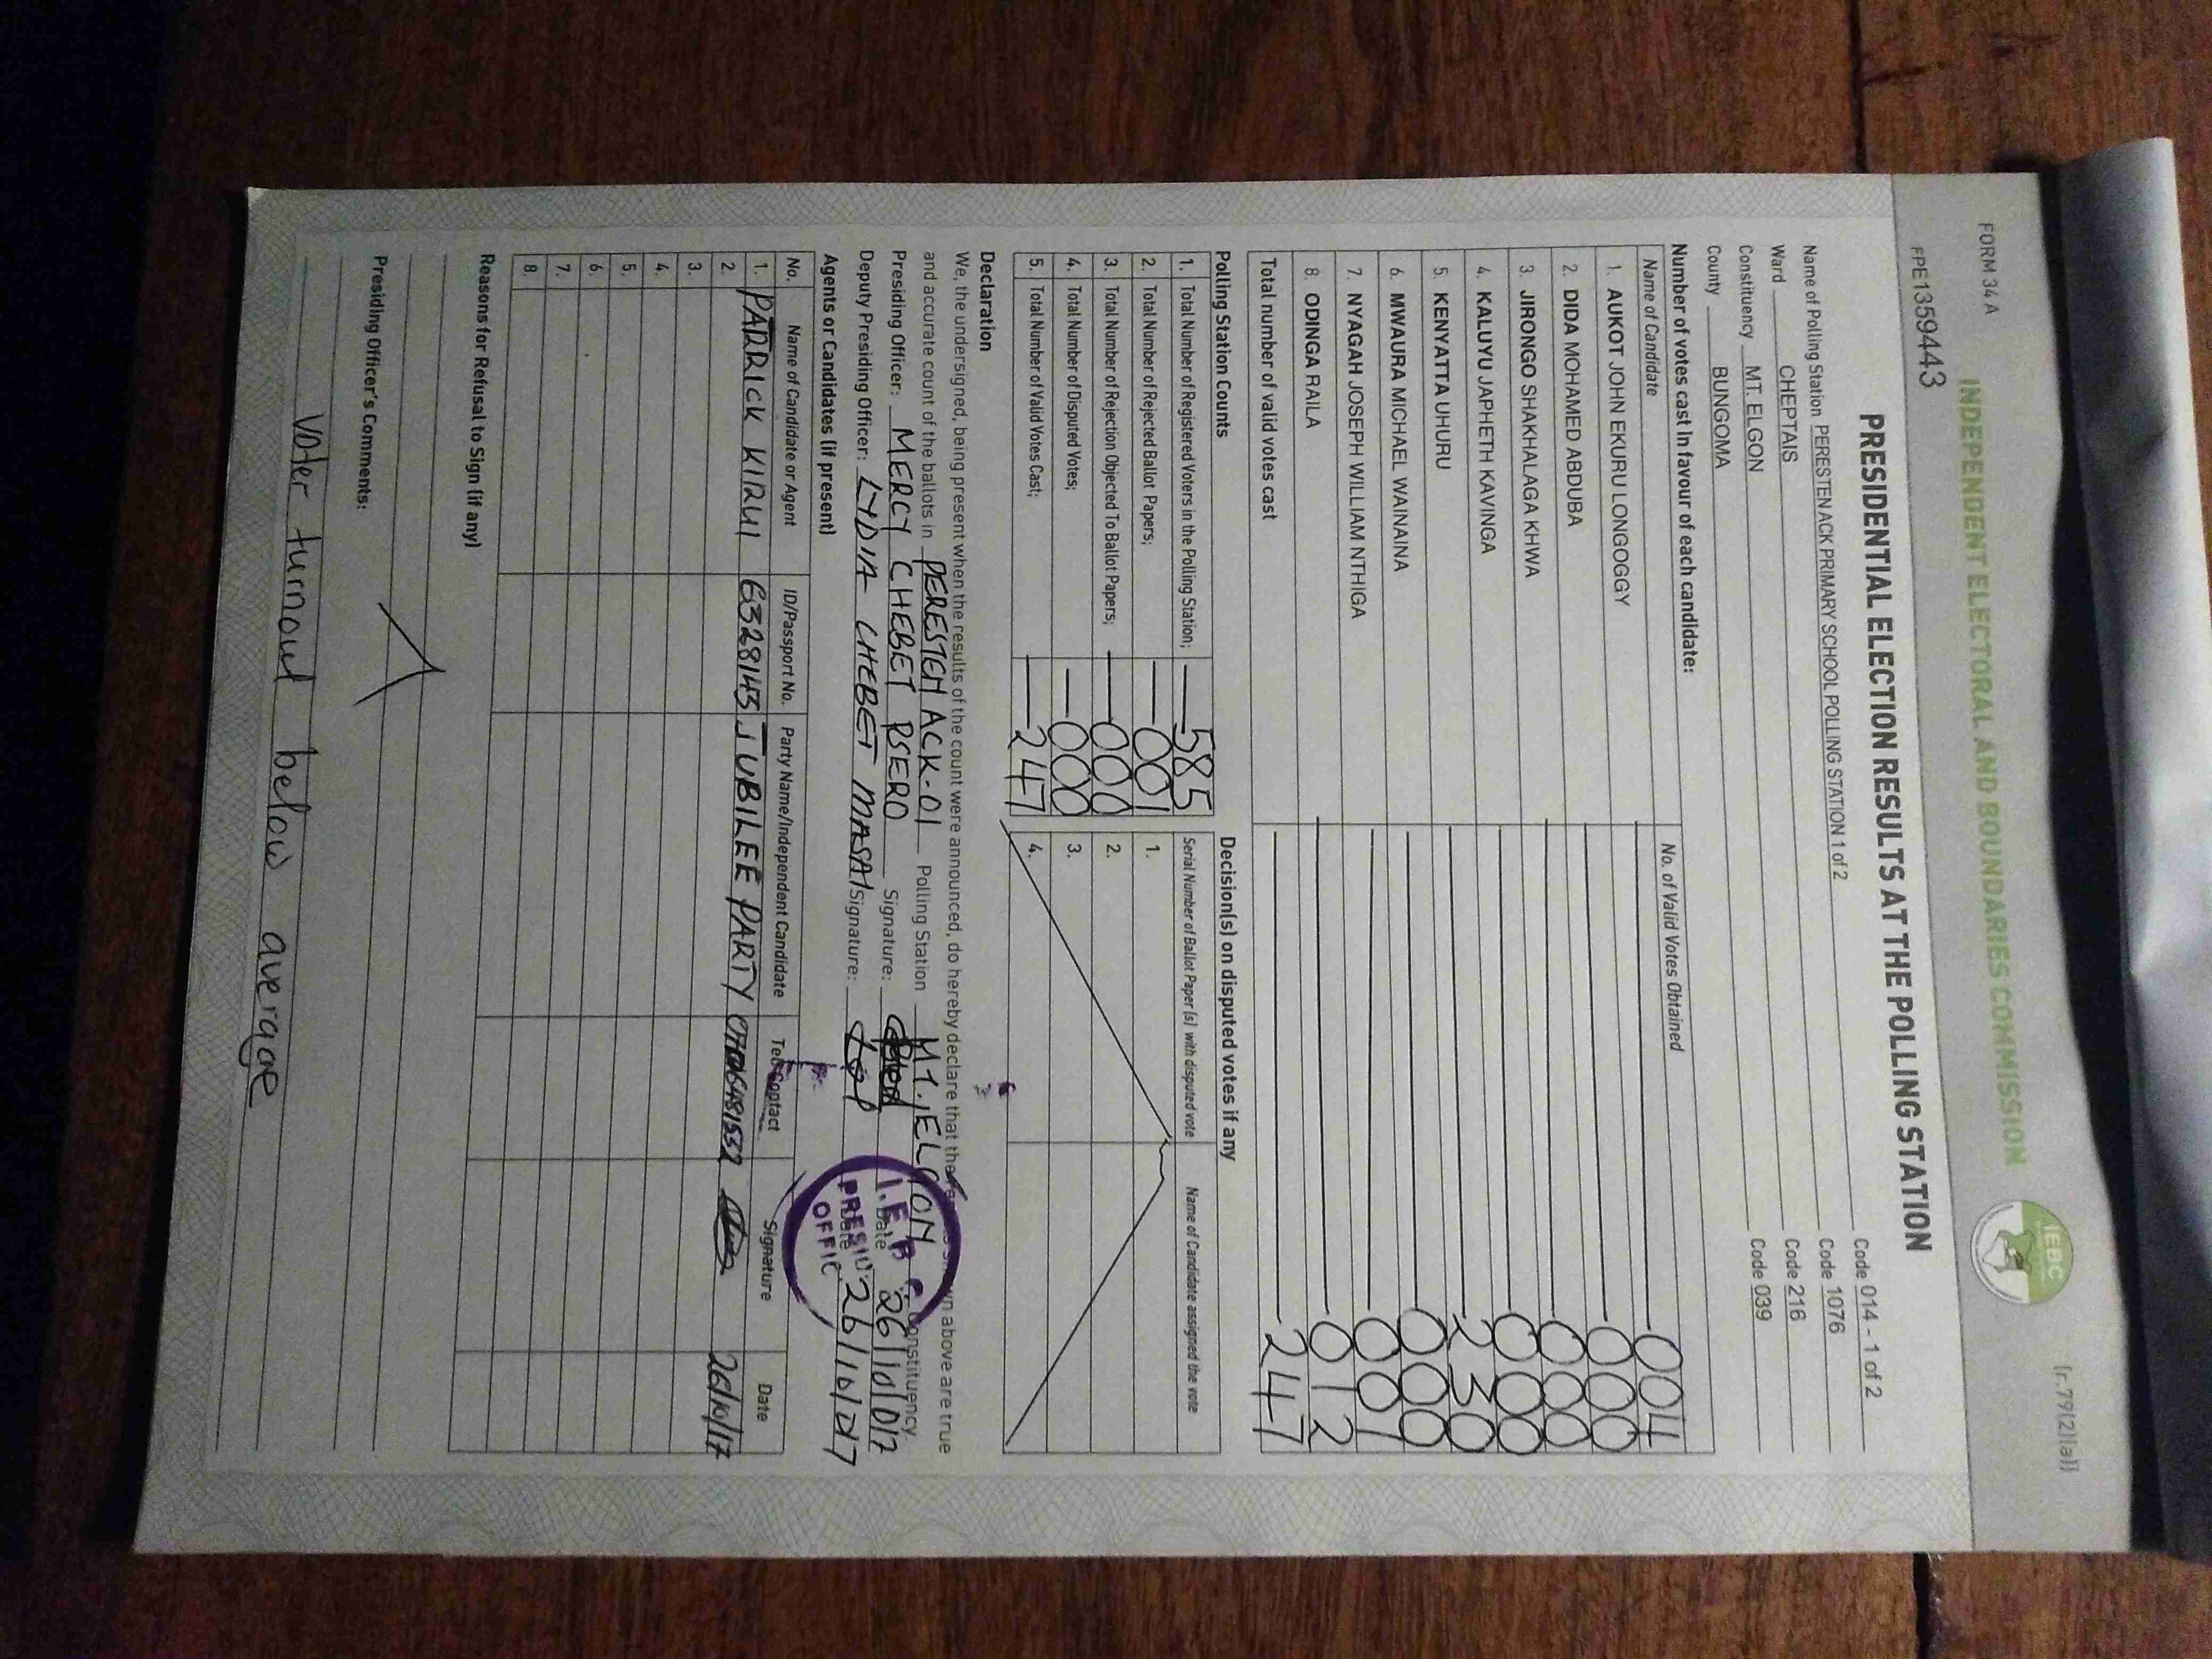 FORM 34 A
(r.79(2)(a))
INDEPENDENT ELECTORAL AND BOUNDARIES COMMISSION
IEBC
FPE1359443
PRESIDENTIAL ELECTION RESULTS AT THE POLLING STATION
Name of Polling Station PERESTEN ACK PRIMARY SCHOOL POLLING STATION 1 of 2 Code 014 - 1 of 2
Ward CHEPTAIS Code 1076
Constituency MT. ELGON Code 216
County BUNGOMA Code 039
Number of votes cast in favour of each candidate:
Name of Candidate No. of Valid Votes Obtained
1. AUKOT JOHN EKURU LONGOGGY 004
2. DIDA MOHAMED ABDUBA 000
3. JIRONGO SHAKHALAGA KHWA 000
4. KALUYU JAPHETH KAVINGA 000
5. KENYATTA UHURU 230
6. MWAURA MICHAEL WAINAINA 000
7. NYAGAH JOSEPH WILLIAM NTHIGA 001
8. ODINGA RAILA 012
Total number of valid votes cast 247
Polling Station Counts
1. Total Number of Registered Voters in the Polling Station; 585
2. Total Number of Rejected Ballot Papers; 001
3. Total Number of Rejection Objected To Ballot Papers; 000
4. Total Number of Disputed Votes; 000
5. Total Number of Valid Votes Cast; 247
Decision(s) on disputed votes if any
Serial Number of Ballot Paper (s) with disputed vote Name of Candidate assigned the vote
1.
2.
3.
4.
Declaration
We, the undersigned, being present when the results of the count were announced, do hereby declare that the above are true
and accurate count of the ballots in PERESTEN ACK-01 Polling Station MT. ELGON Constituency.
Presiding Officer: MERCY CHEBET PSERO Signature: Date 26/10/017
Deputy Presiding Officer: LYDIA CHEBET MASAI Signature: Date 26/10/017
I.E.B.C
PRESIDI
OFFIC
Agents or Candidates (if present)
No. Name of Candidate or Agent ID/Passport No. Party Name/Independent Candidate Tel. Contact Signature Date
1. PATRICK KIRUI 6328143 JUBILEE PARTY 26/10/17
2.
3.
4.
5.
6.
7.
8.
Reasons for Refusal to Sign (if any)
Presiding Officer's Comments:
Voter turnout below average